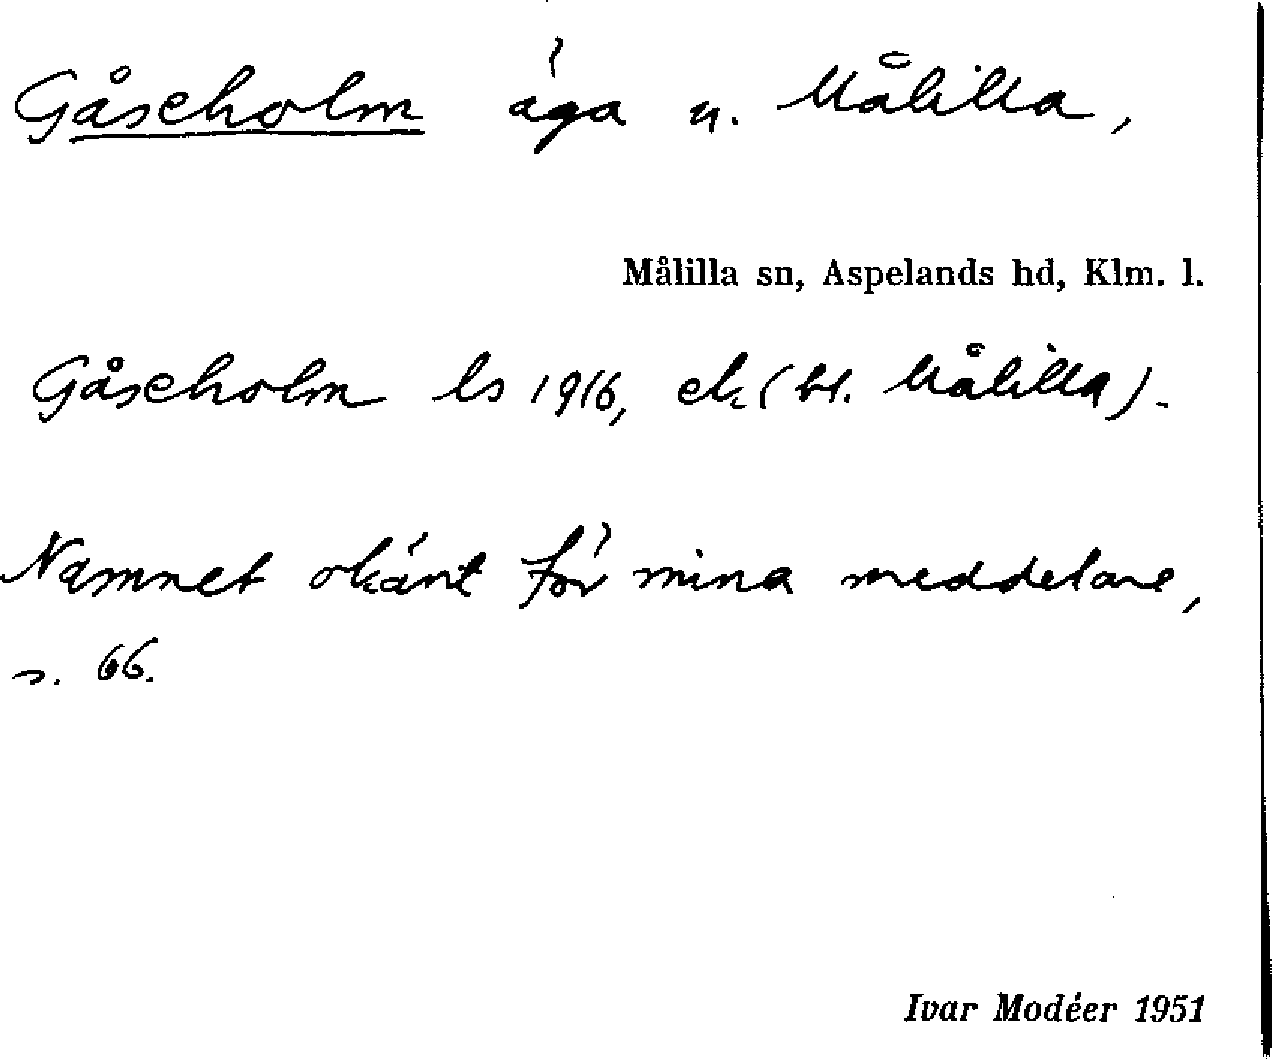 Gåseholm äga u. Målilla,
Målilla sn, Aspelands hd, Klm. l.
Gåseholm ls 1916, ek (bl. Målilla).
Namnet okänt för mina meddelare,
s. 66.
Ivar Modéer 1951